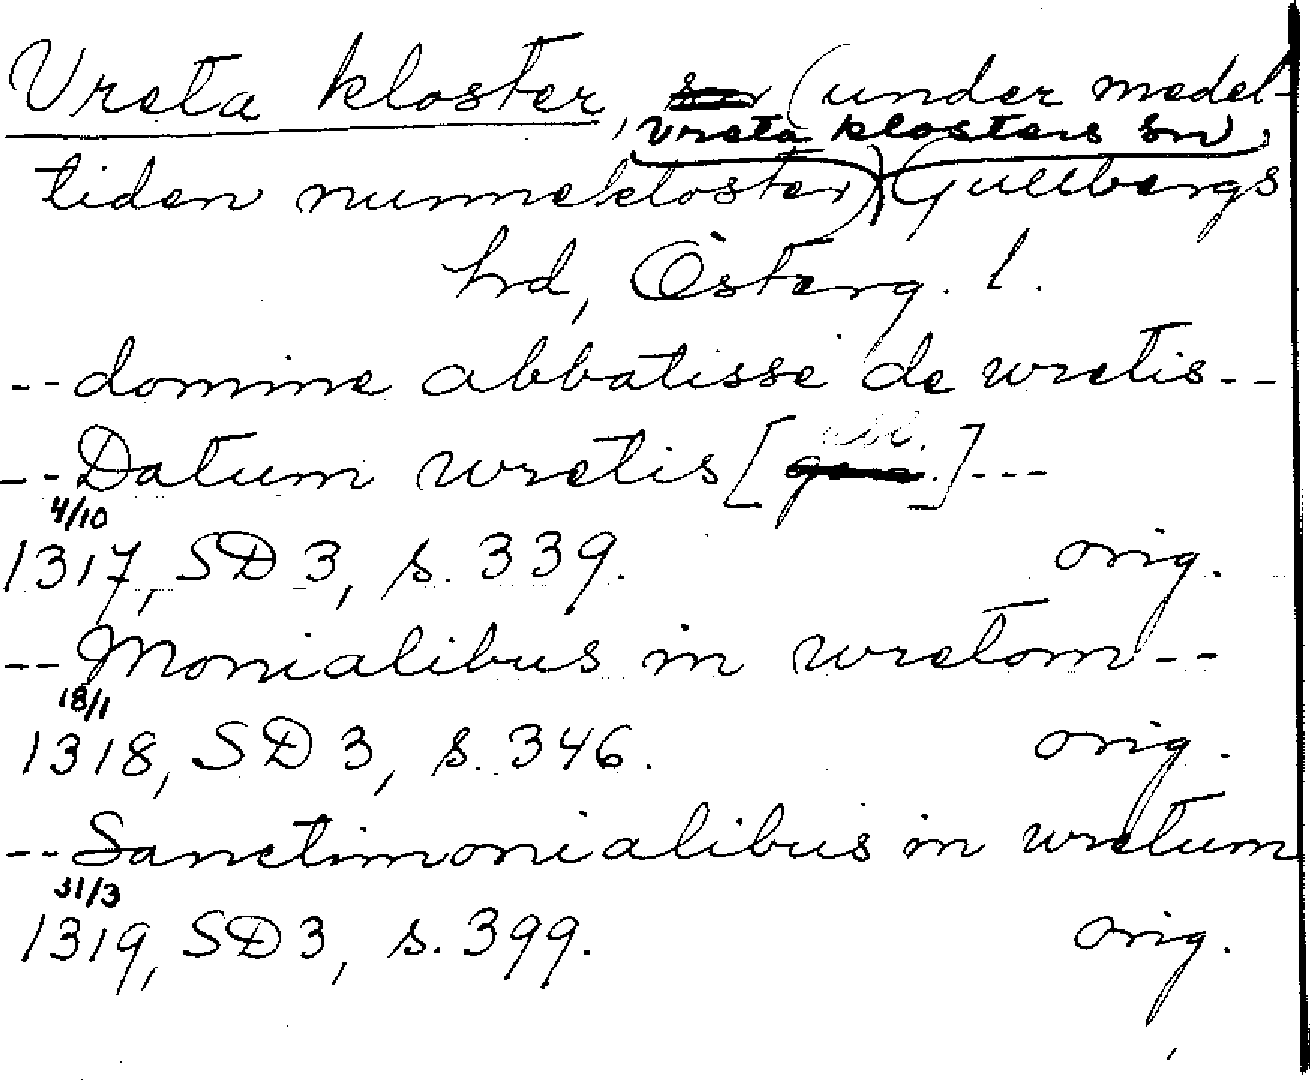 Vreta kloster, sn (under medel-
Vreta klosters sn,
tiden nunnekloster) Gullbergs
hd, Österg. l.
--domine abbatisse de wretis--
--Datum wretis [abl.]---
4/10
1317, SD 3, s. 339. orig.
--Monialibus in wretom--
18/1
1318, SD 3, s. 346. orig.
--Sanctimonialibus in wretum
31/3
1319, SD 3, s. 399. orig.